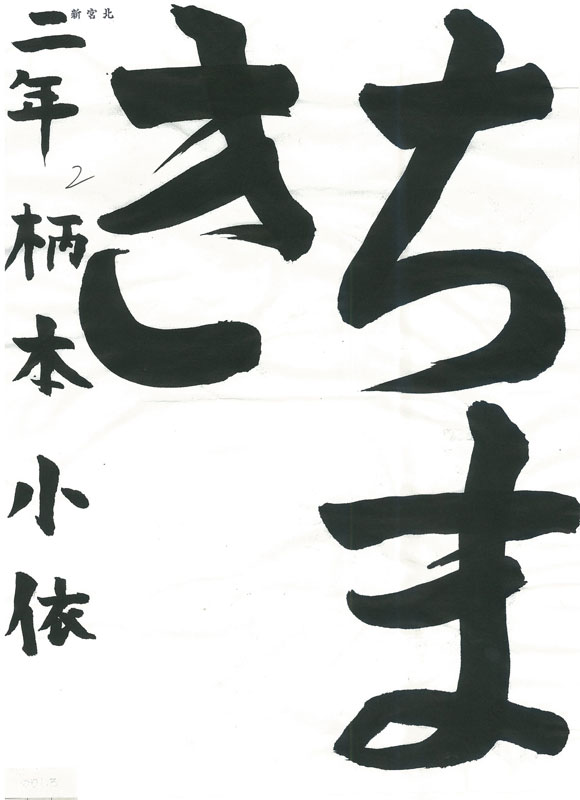 ちま
き
北宮新
二年 柄本小依
2